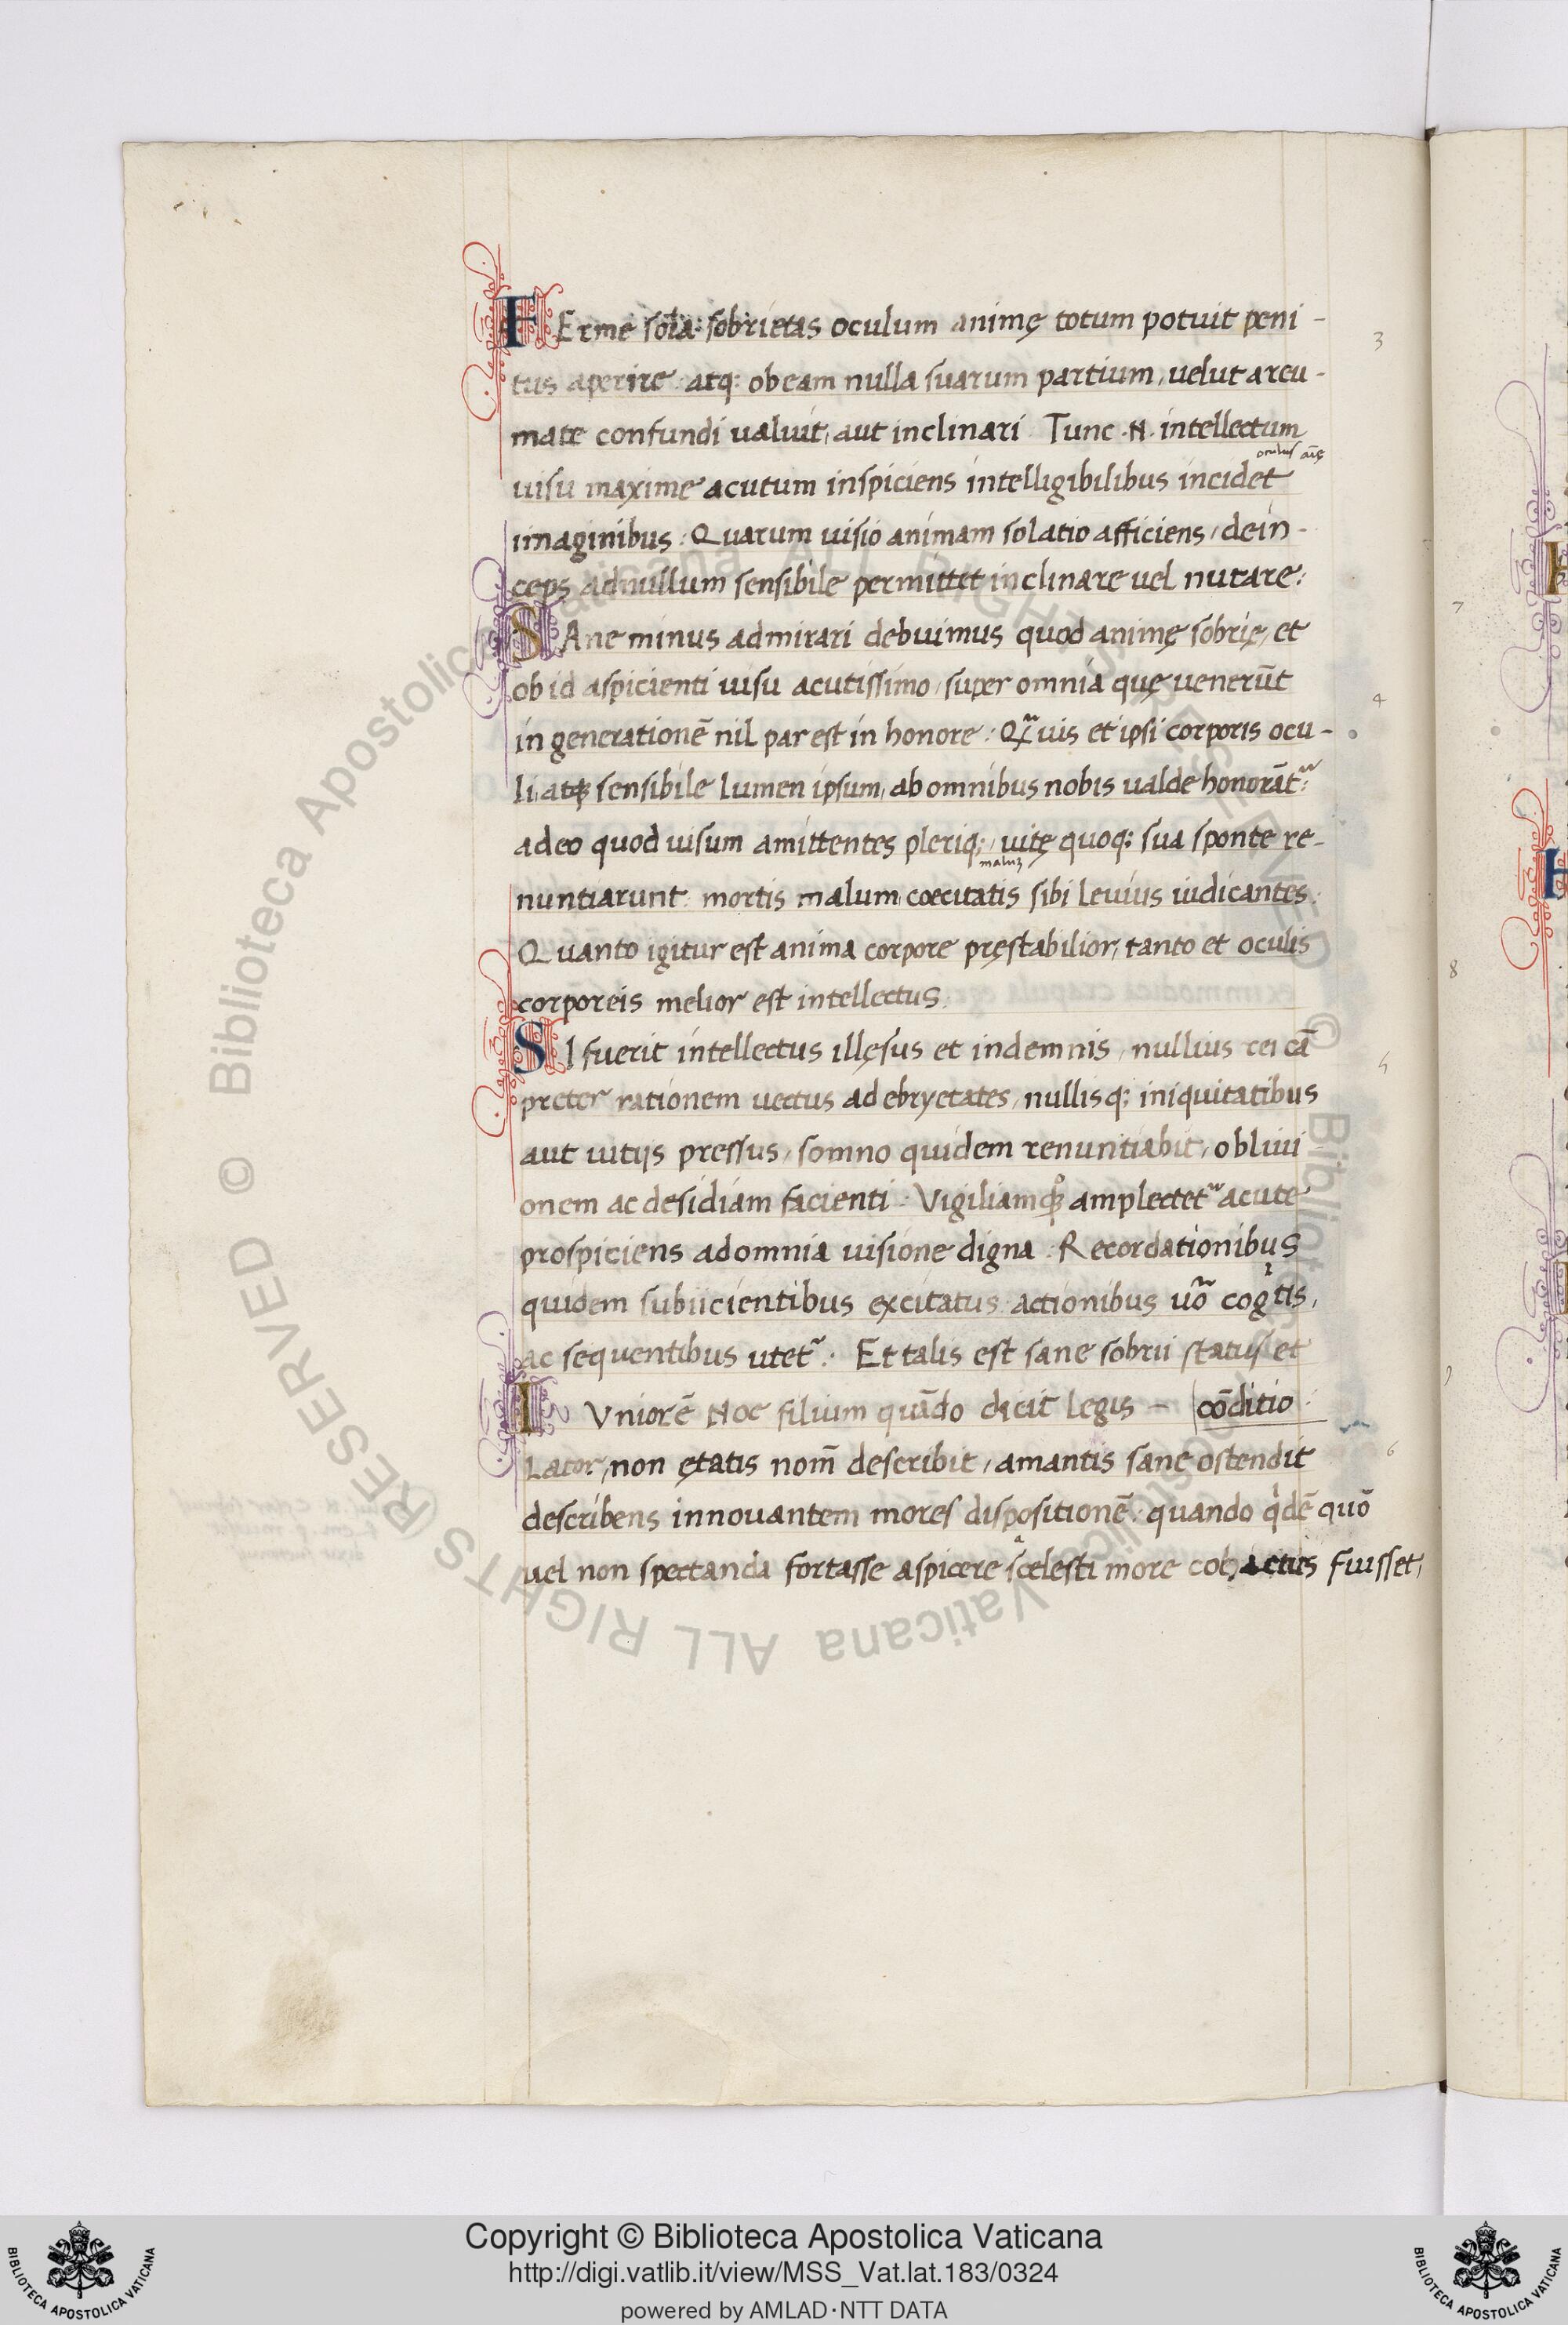 FErme sola: sobrietas oculum animę totum potuit peni -
tus aperire: atq: ob eam nulla suarum partium, uelut arcu -
mate confundi ualuit, aut inclinari Tunc .N. intellectum
oculus aīę
uisu maxime acutum inspiciens intelligibilibus incidet
imaginibus: Quarum uisio animam solatio afficiens, dein -
ceps ad nullum sensibile permittet inclinare uel nutare:
SAne minus admirari debuimus quod animę sobrię, et
ob id aspicienti uisu acutissimo, super omnia quę uenerūt
in generationē nil par est in honore: Q̃uis et ipsi corporis ocu -
li, atq; sensibile lumen ipsum, ab omnibus nobis ualde honorāt᷑:
adeo quod uisum amittentes pleriq;, uitę quoq: sua sponte re -
maluȝ
nuntiarunt: mortis malum, coecitatis sibi leuius iudicantes:
Quanto igitur est anima corpore pręstabilior, tanto et oculis
corporeis melior est intellectus.
SI fuerit intellectus illęsus et indemnis, nullius rei cā
preter rationem uectus ad ebryetates, nullisq; iniquitatibus
aut uitijs pressus, somno quidem renuntiabit, obliui
onem ac desidiam facienti: Vigiliamq; amplectet᷑ acute
prospiciens ad omnia uisione digna: Recordationibus
quidem subiicientibus excitatus: actionibus uō cogtis,
ac sequentibus utet᷑: Et talis est sane sobrii status et
IVniorē Noe filium quādo dicit legis - cōditio:
Lator, non ętatis nom̄ describit, amantis sane ostendit
describens innouantem mores dispositionē: quando q'dē quō
uel non spectanda fortasse aspicere scelesti more coactus fuisset,
3
4
5
6
7
8
© Biblioteca Apostolica Vaticana ALL RIGHTS RESERVED
© Biblioteca Apostolica Vaticana ALL RIGHTS RESERVED
Copyright © Biblioteca Apostolica Vaticana
http://digi.vatlib.it/view/MSS_Vat.lat.183/0324
powered by AMLAD·NTT DATA
BIBLIOTECA APOSTOLICA VATICANA
BIBLIOTECA APOSTOLICA VATICANA